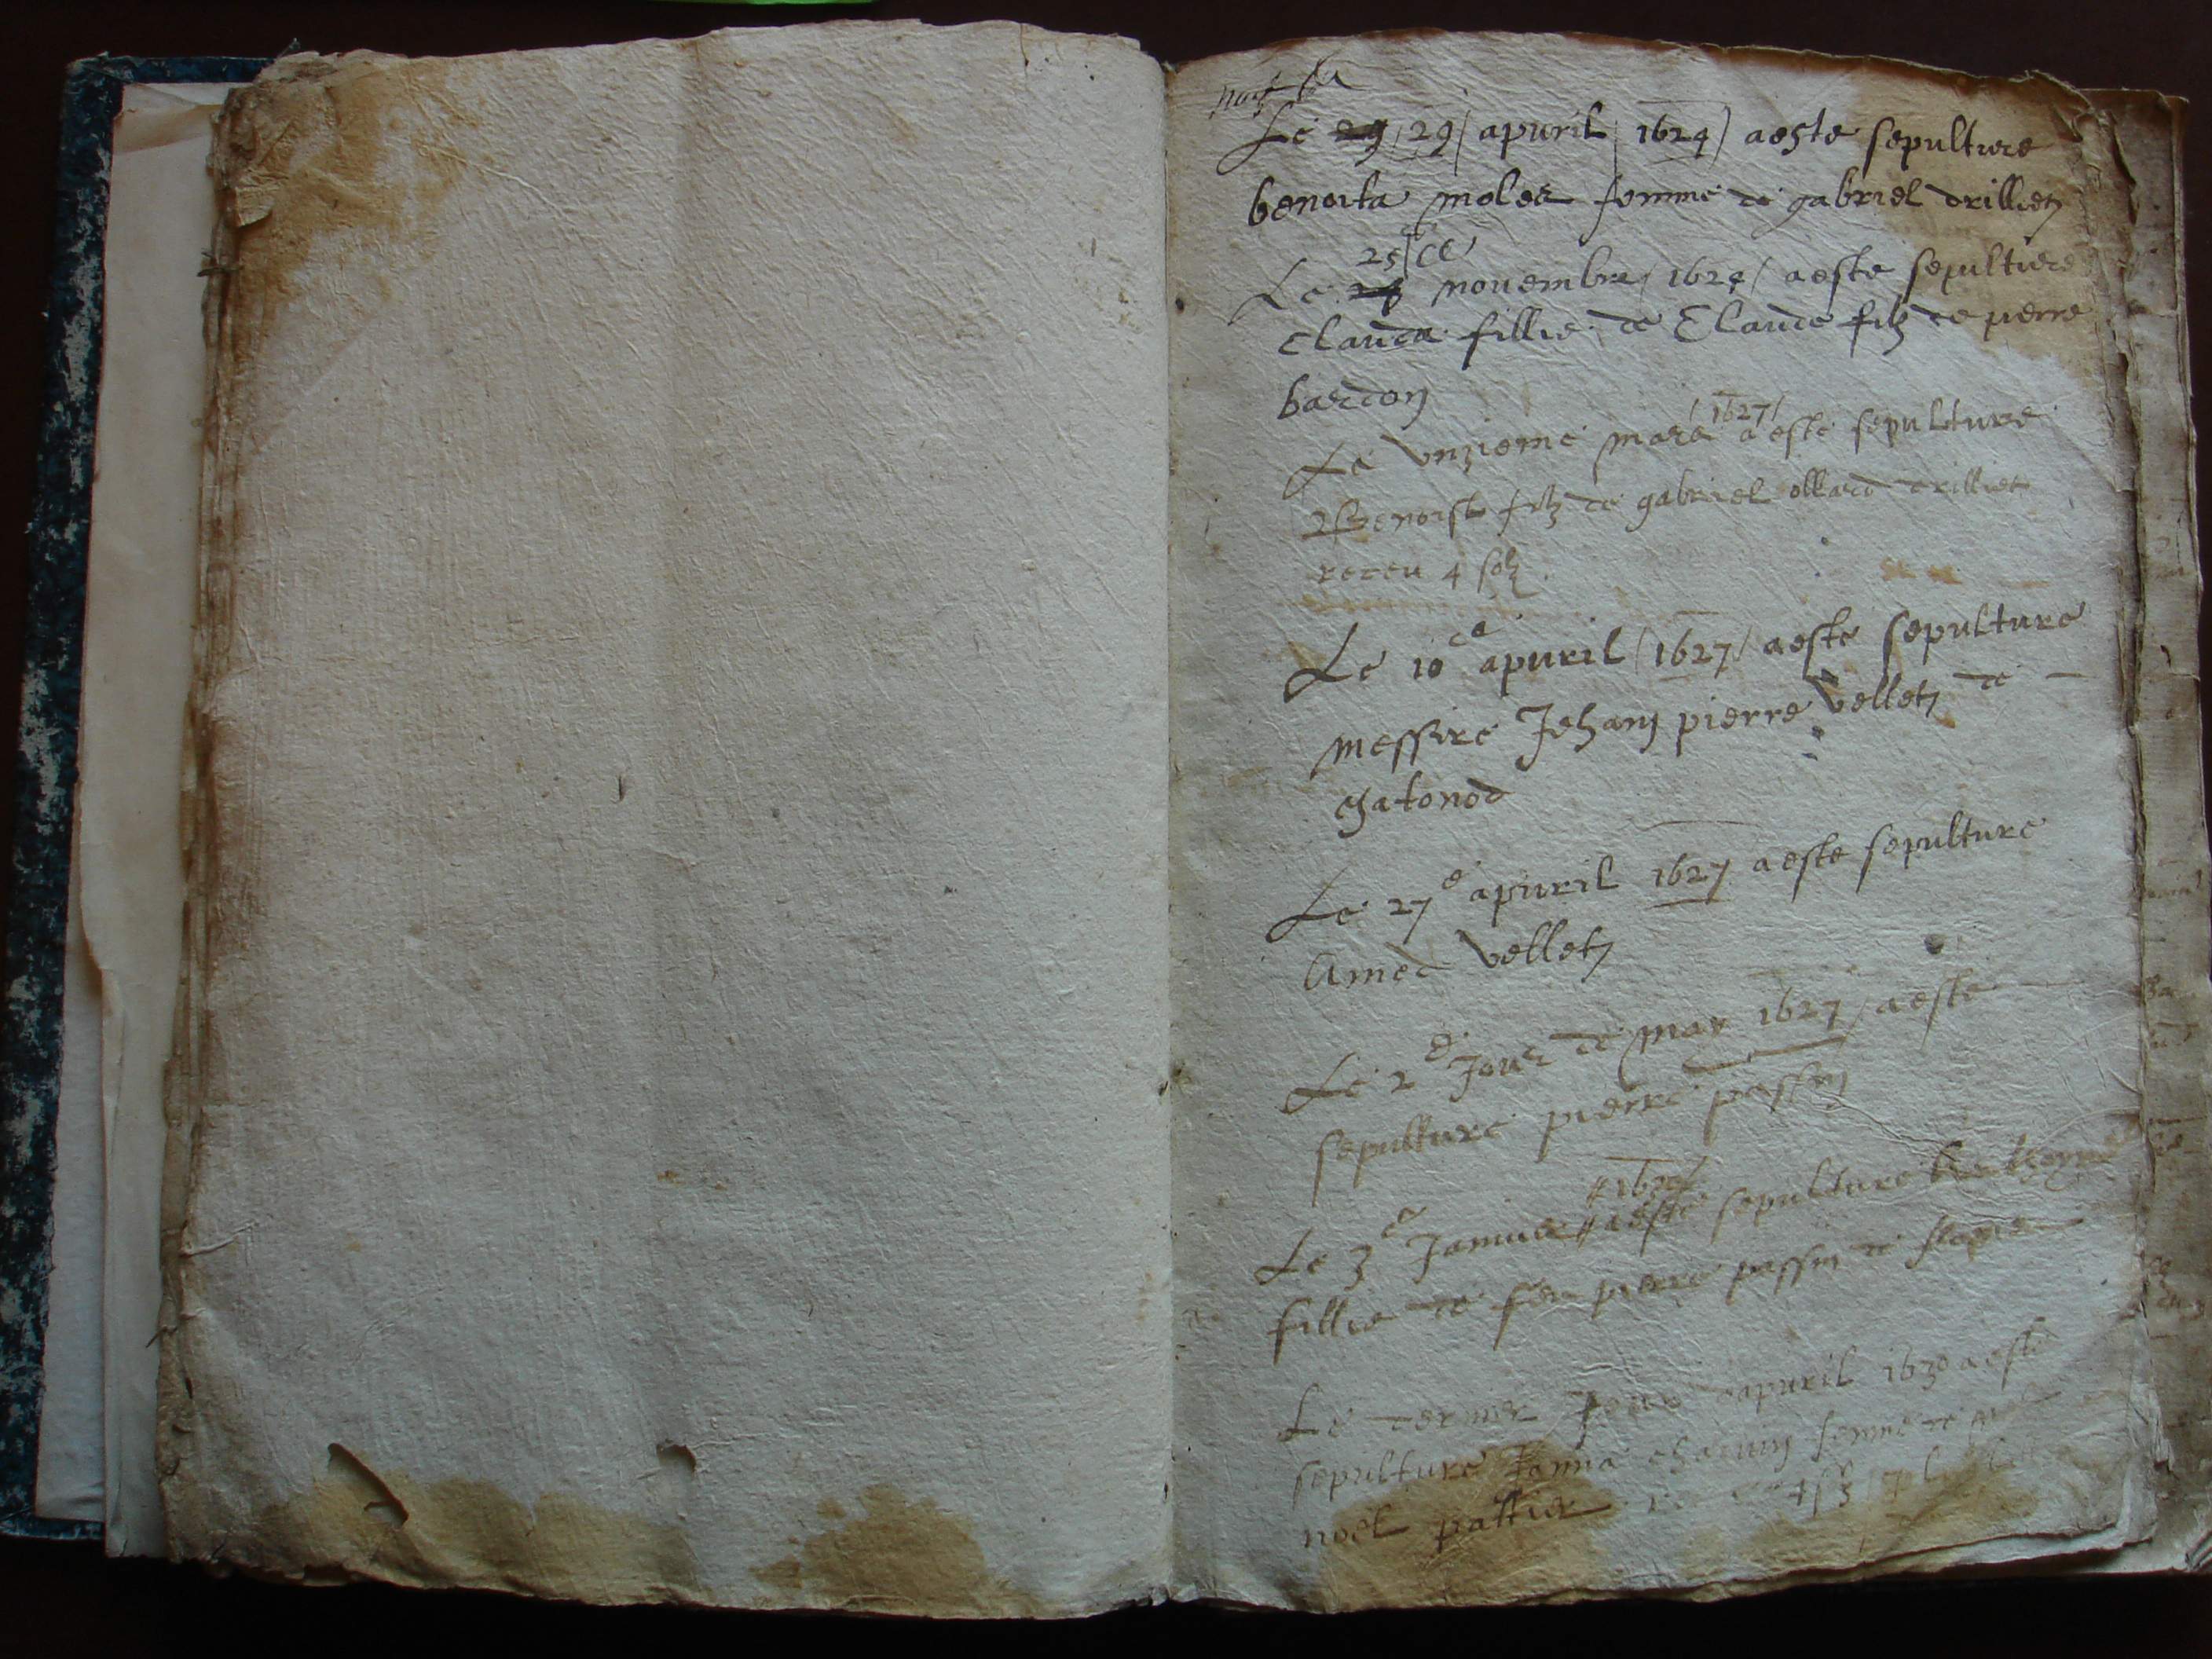 Le 29 / 29 / apuril / 1624 / aeste sepulture
benoita moles femme de gabriel drilliet
25
Le novembre / 1624 / aeste sepulture
Clauda fillie de Claude filz de pierre
bardon
/ 1627 /
Le vnzieme mars a este sepulture
Benoist filz de gabriel ollard drilliet
receu 4 solz
Le 10e apuril / 1627 / aeste sepulture
messire Jehan pierre vellet de
chatonod
Le 27e apuril 1627 aeste sepulture
Amed vellet
Le 2e Jour de may 1627 / aeste
sepulture pierre passin
Le 3e Januier aeste sepulture
fillie de feu pierre passin de
Le dernier Jour dapuril 1630 aeste
sepulture Janna charuin femme de
noel pattier